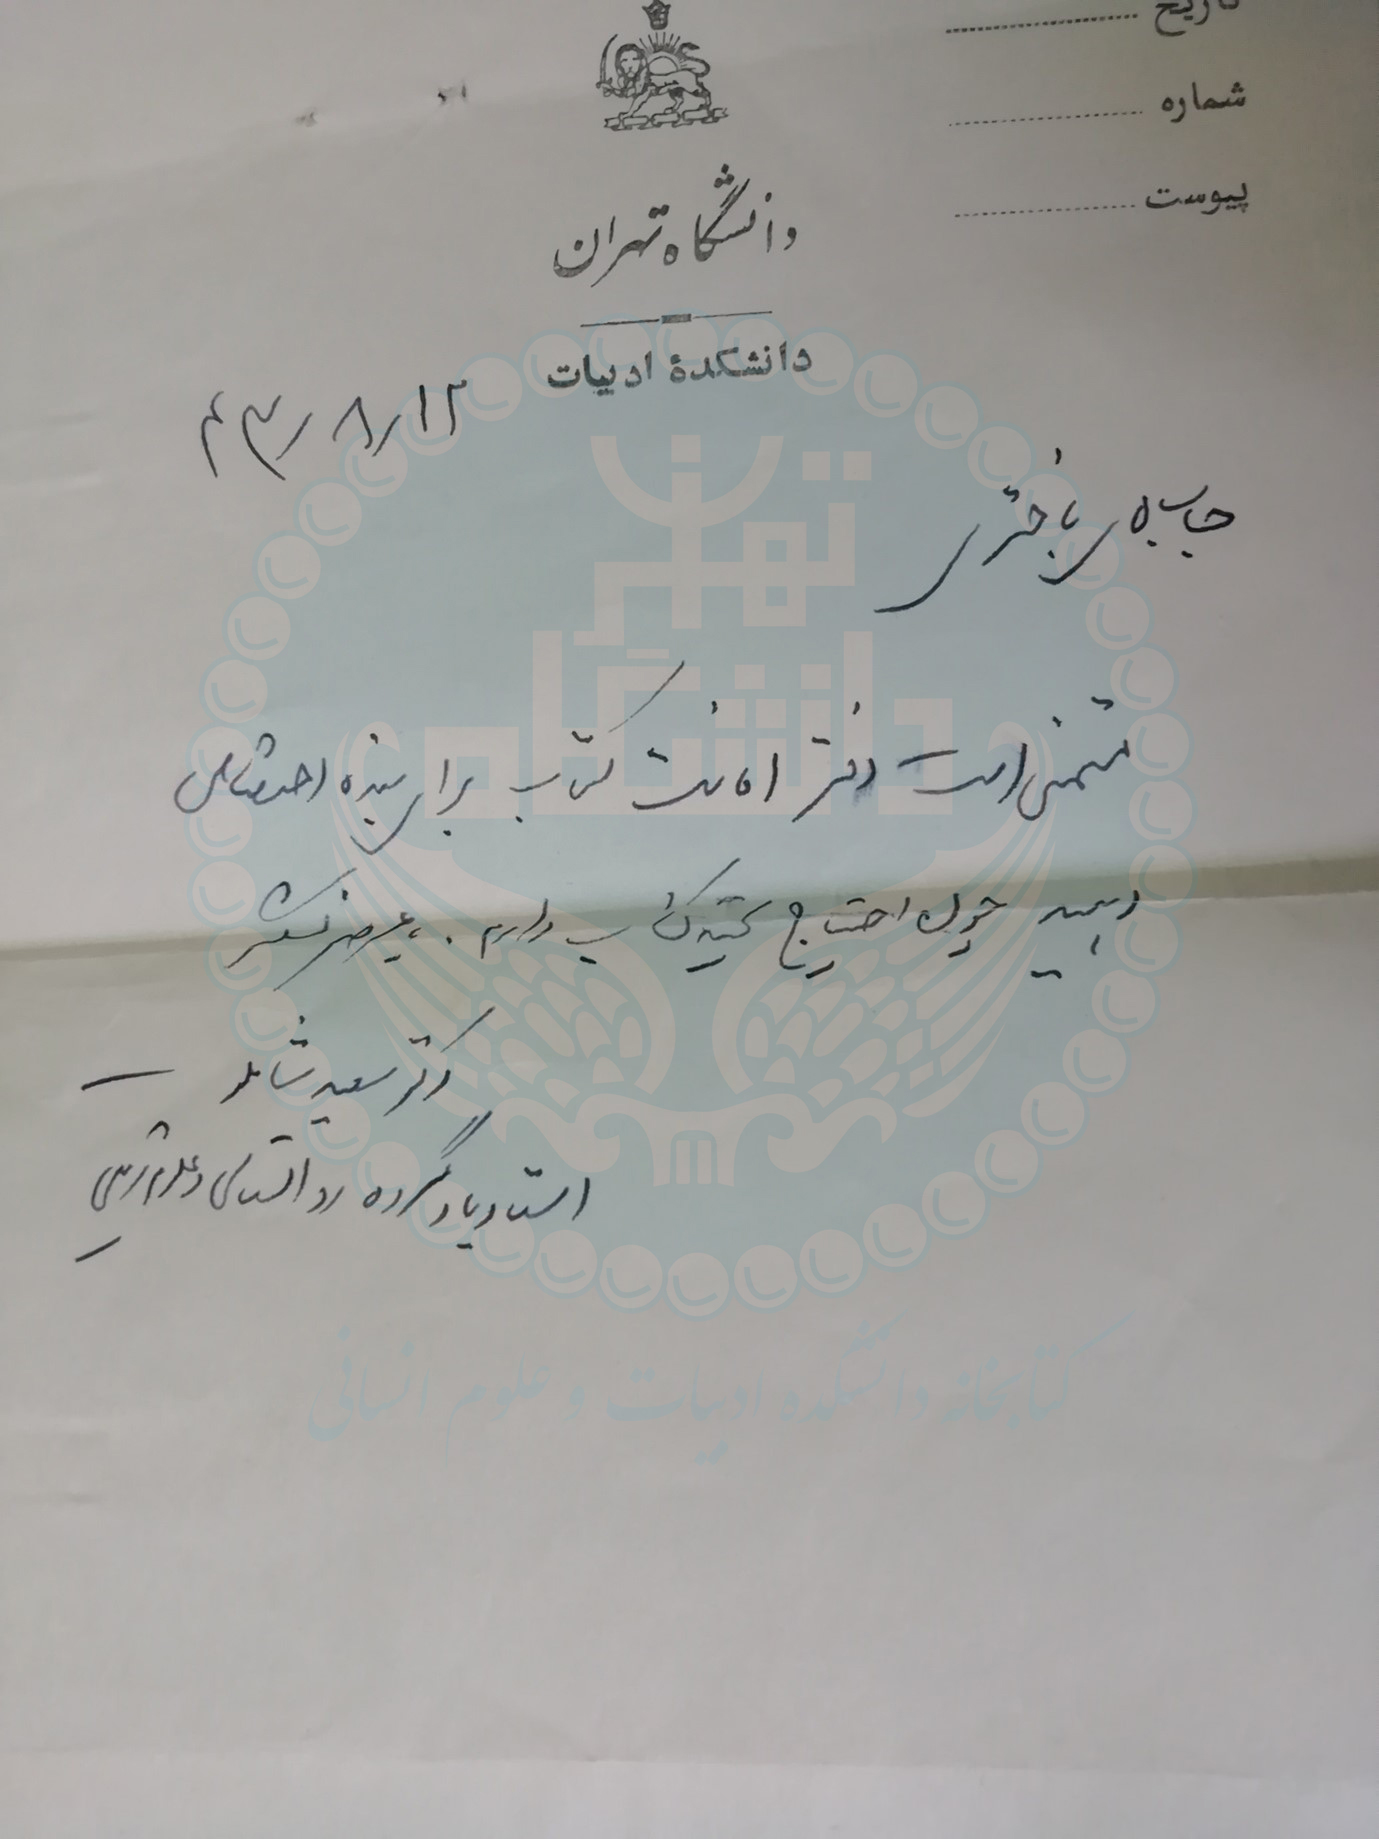 تاریخ
شماره
پیوست
دانشگاه تهران
دانشکدهٔ ادبیات
۴۳/۸/۱۲
جناب آقای باختری
متمنی است دفتر امانت کتاب برای بنده اختصاص
دهید چون احتیاج به چند کتاب دارم. با عرض تشکر
دکتر سعید شاملو
استادیار گروه روانشناسی و علوم تربیتی
دانشگاه تهران
کتابخانه دانشکده ادبیات و علوم انسانی